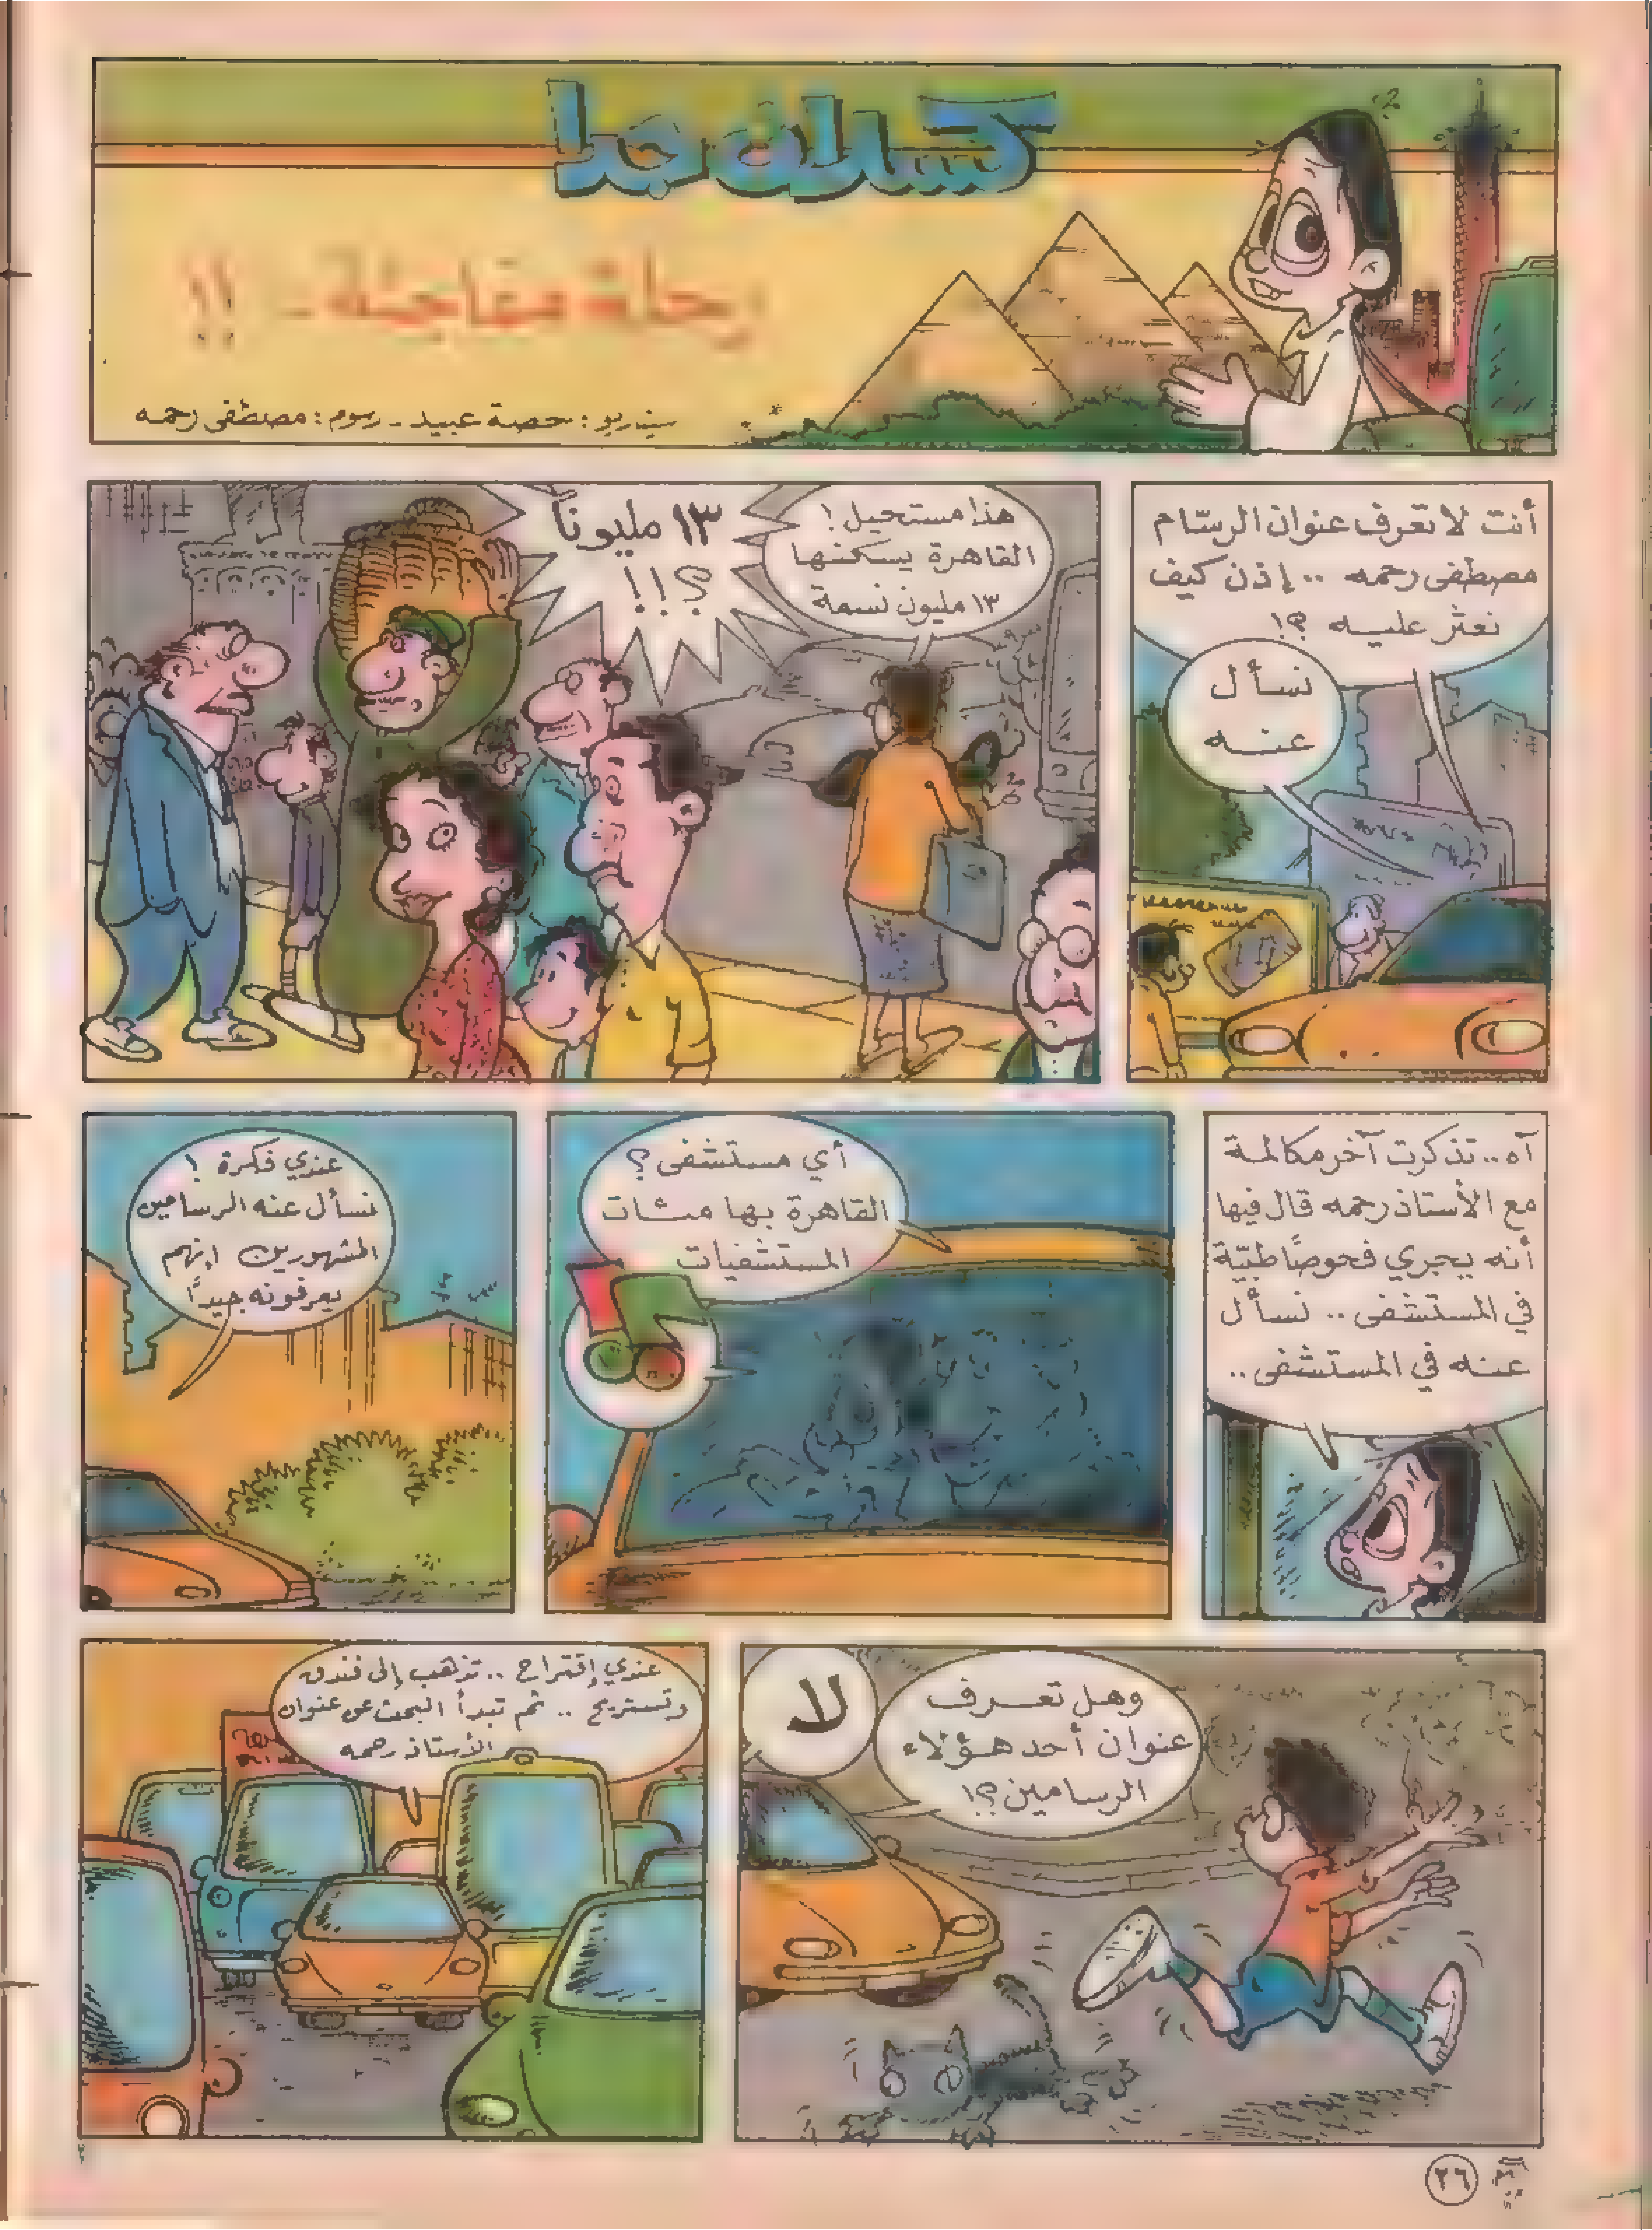 كسلان جدا
رحلة مفاجئة - !!
سيناريو : حصة عبيد - رسوم : مصطفى رحمه
أنت لا تعرف عنوان الرسّام
مصطفى رحمه .. إذن كيف
نعثر عليه ؟!
نسأل
عنه
هذا مستحيل !
القاهرة يسكنها
١٣ مليون نسمة
١٣ مليوناً
؟!!
آه .. تذكرت آخر مكالمة
مع الأستاذ رحمه قال فيها
أنه يجري فحوصًا طبيّة
في المستشفى .. نسأل
عنه في المستشفى ..
أي مستشفى ؟
القاهرة بها مئات
المستشفيات
عندي فكرة !
نسأل عنه الرسامين
المشهورين إنهم
يعرفونه جيداً
وهل تعرف
عنوان أحد هؤلاء
الرسامين ؟!
لا
عندي إقتراح .. تذهب إلى فندق
وتستريح .. ثم تبدأ البحث عن عنوان
الأستاذ رحمه
٢٦